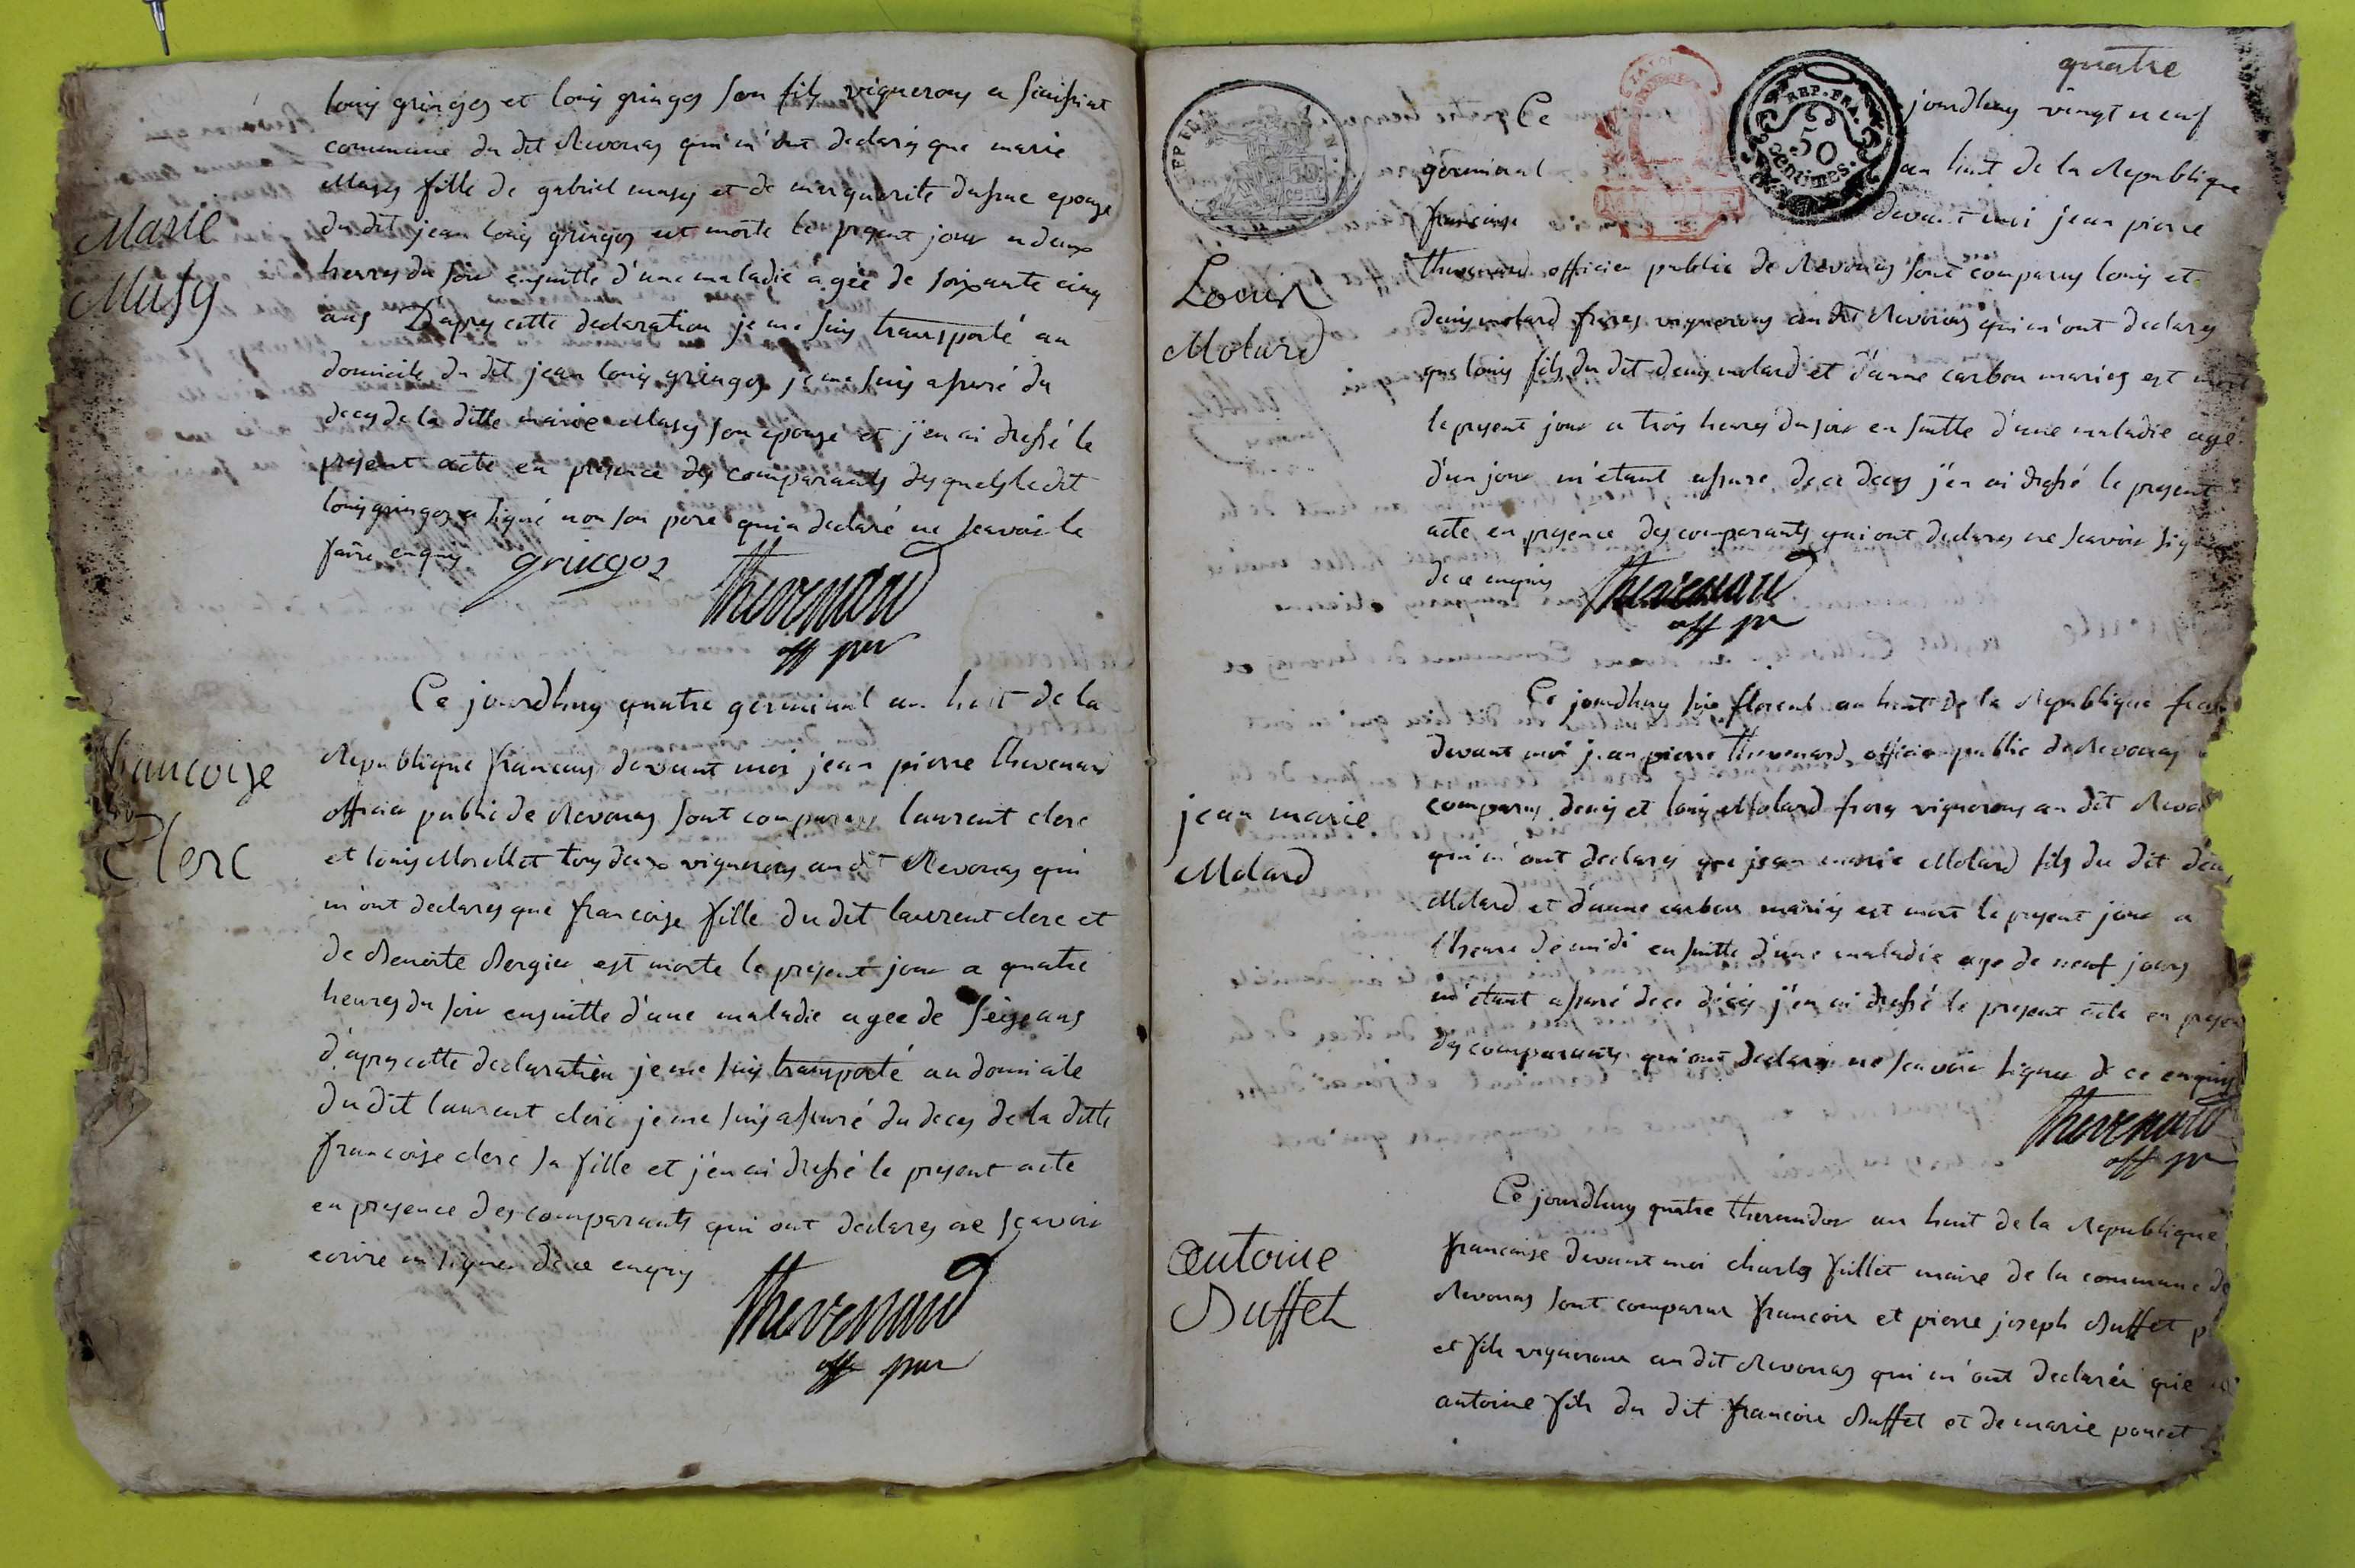 louis gringoz et louis gringoz son fils vignerons a
commune du dit Revonas qui m'ont declarés que marie
Musy fille de gabriel musy et de marguerite epouze
du dit jean louis gringoz est morte le present jour a deux
heures du soir ensuitte d'une maladie agée de soixante cinq
ans D'apres cette declaration je me suis transporté au
domicile du dit jean louis gringoz je me suis assuré du
deces de la ditte marie Musy son epouze et j'en ai dressé le
present acte en presence des comparants desquels le dit
louis gringoz a signé non son pere qui a declaré ne scavoir le
faire enquis gringoz Thevenard
off pu
Marie
Musy
Ce jourdhuy quatre germinal an huit de la
Republique francais devant moi jean pierre thevenard
officier public de Revonas sont comparus laurent clerc
et louis Morellet tous deux vignerons au dit Revonas qui
m'ont declares que francoise fille du dit laurent clerc et
de Benoite Bergier est morte le present jour a quatre
heures du soir ensuitte d'une maladie agee de seize ans
d'apres cette declaration je me suis transporté au domicile
du dit laurent clerc je me suis assuré du deces de la ditte
francoise clerc sa fille et j'en ai dressé le present acte
en presence des comparants qui ont declares ne scavoir
ecrire ni signer de ce enquis
Thevenard
off pu
francoise
Clerc
quatre
REP. FRA.
50
centimes.
Ce jourdhuy vingt neuf
germinal an huit de la Republique
francaise devant moi jean pierre
thevenard officier public de Revonas sont comparus louis et
denis molard freres vignerons au dit Revonas qui m'ont declares
que louis fils du dit denis molard et d'anne carbon mariés est mort
le present jour a trois heures du soir en suitte d'une maladie agé
d'un jour m'étant assure de ce deces j'en ai dressé le present
acte en presence des comparants qui ont declares ne scavoir signer
de ce enquis Thevenard
off pu
Louis
Molard
Ce jourdhuy six floreal an huit de la Republique
devant moi jean pierre thevenard officier public de Revonas
comparus denis et louis Molard freres vignerons au dit
qui m'ont declarés que jean marie Molard fils du dit denis
Molard et d'anne carbon mariés est mort le present jour a
l'heure de midi en suitte d'une maladie age de neuf jours
m'étant assuré de ce décés j'en ai dressé le present acte en
des comparants qui ont declares ne scavoir signer de ce enquis
Thevenard
off pu
jean marie
Molard
Ce jourdhuy quatre thermidor an huit de la Republique
francaise devant moi charles maire de la commune de
Revonas sont comparus francois et pierre joseph Buffet
et fils vignerons au dit Revonas qui m'ont declarés que
antoine fils du dit francois Buffet et de marie poncet
antoine
Buffet